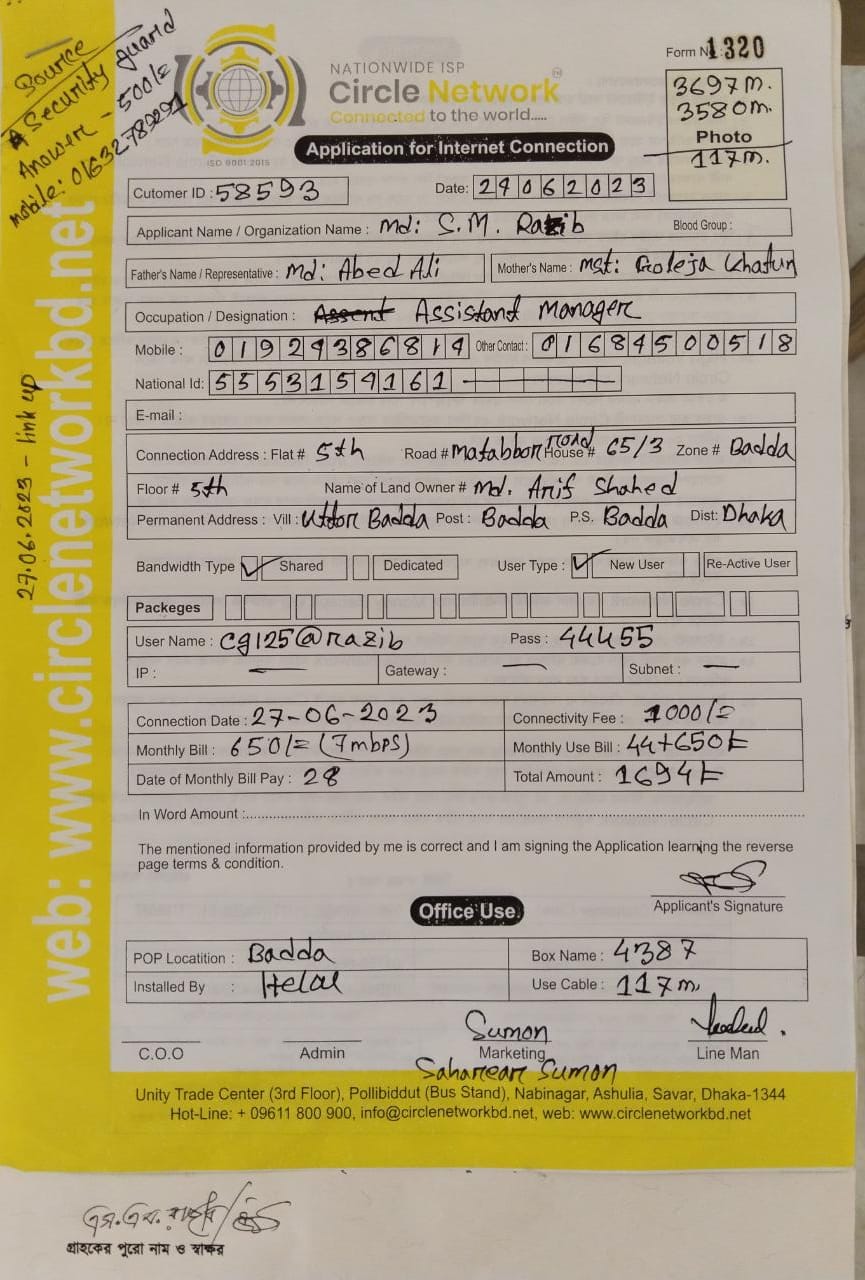 Source
Security guard
Answer - 500/=
mobile: 01632789291
NATIONWIDE ISP
Circle Network
Connected to the world.....
ISO 9001:2015
Form N 1320
3697 m.
3580 m.
Photo
117 m.
Application for Internet Connection
Cutomer ID : 58593
Date: 24062023
Applicant Name / Organization Name : Md: S.M. Razib Blood Group :
Father's Name / Representative : Md: Abed Ali Mother's Name : Mst: Goleja Khatun
Occupation / Designation : Assistand Manager
Mobile : 01924386814 Other Contact : 01684500518
National Id: 5553154161
E-mail :
Connection Address : Flat # 5th Road # Matabbor road House # 65/3 Zone # Badda
Floor # 5th Name of Land Owner # Md. Arif Shahed
Permanent Address : Vill : Uttor Badda Post : Badda P.S. Badda Dist: Dhaka
Bandwidth Type Shared Dedicated User Type : New User Re-Active User
Packeges
User Name : cg125@razib Pass : 44455
IP : Gateway : Subnet :
Connection Date : 27-06-2023 Connectivity Fee : 1000/=
Monthly Bill : 650/= (7mbps) Monthly Use Bill : 44+650৳
Date of Monthly Bill Pay : 28 Total Amount : 1694৳
In Word Amount :
The mentioned information provided by me is correct and I am signing the Application learning the reverse
page terms & condition.
Applicant's Signature
Office Use.
POP Locatition : Badda Box Name : 4387
Installed By : Helal Use Cable : 117 m.
Sumon
C.O.O Admin Marketing Line Man
Sumon
Unity Trade Center (3rd Floor), Pollibiddut (Bus Stand), Nabinagar, Ashulia, Savar, Dhaka-1344
Hot-Line: + 09611 800 900, info@circlenetworkbd.net, web: www.circlenetworkbd.net
web: www.circlenetworkbd.net
27.06.2023 - link up
এস.এম.
গ্রাহকের পুরো নাম ও স্বাক্ষর